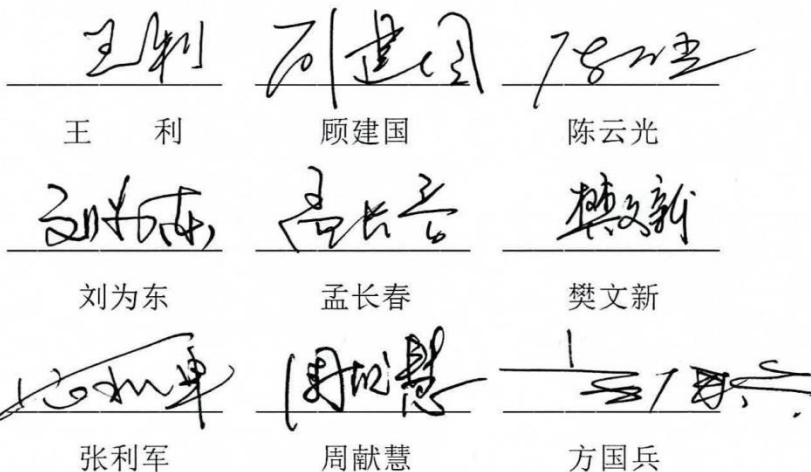 王利 顾建国 陈云光
王 利 顾建国 陈云光
刘为东 孟长春 樊文新
刘为东 孟长春 樊文新
张利军 周献慧 方国兵